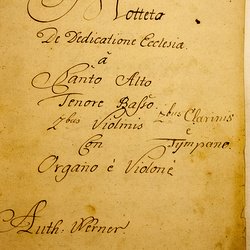 Motteto
De Dedicatione Ecclesia.
â
Canto Alto
Tenore Basso.
2bus Violinis 2bus Clarinis
Con è Tympano.
Organo è Violone
Auth: Werner.